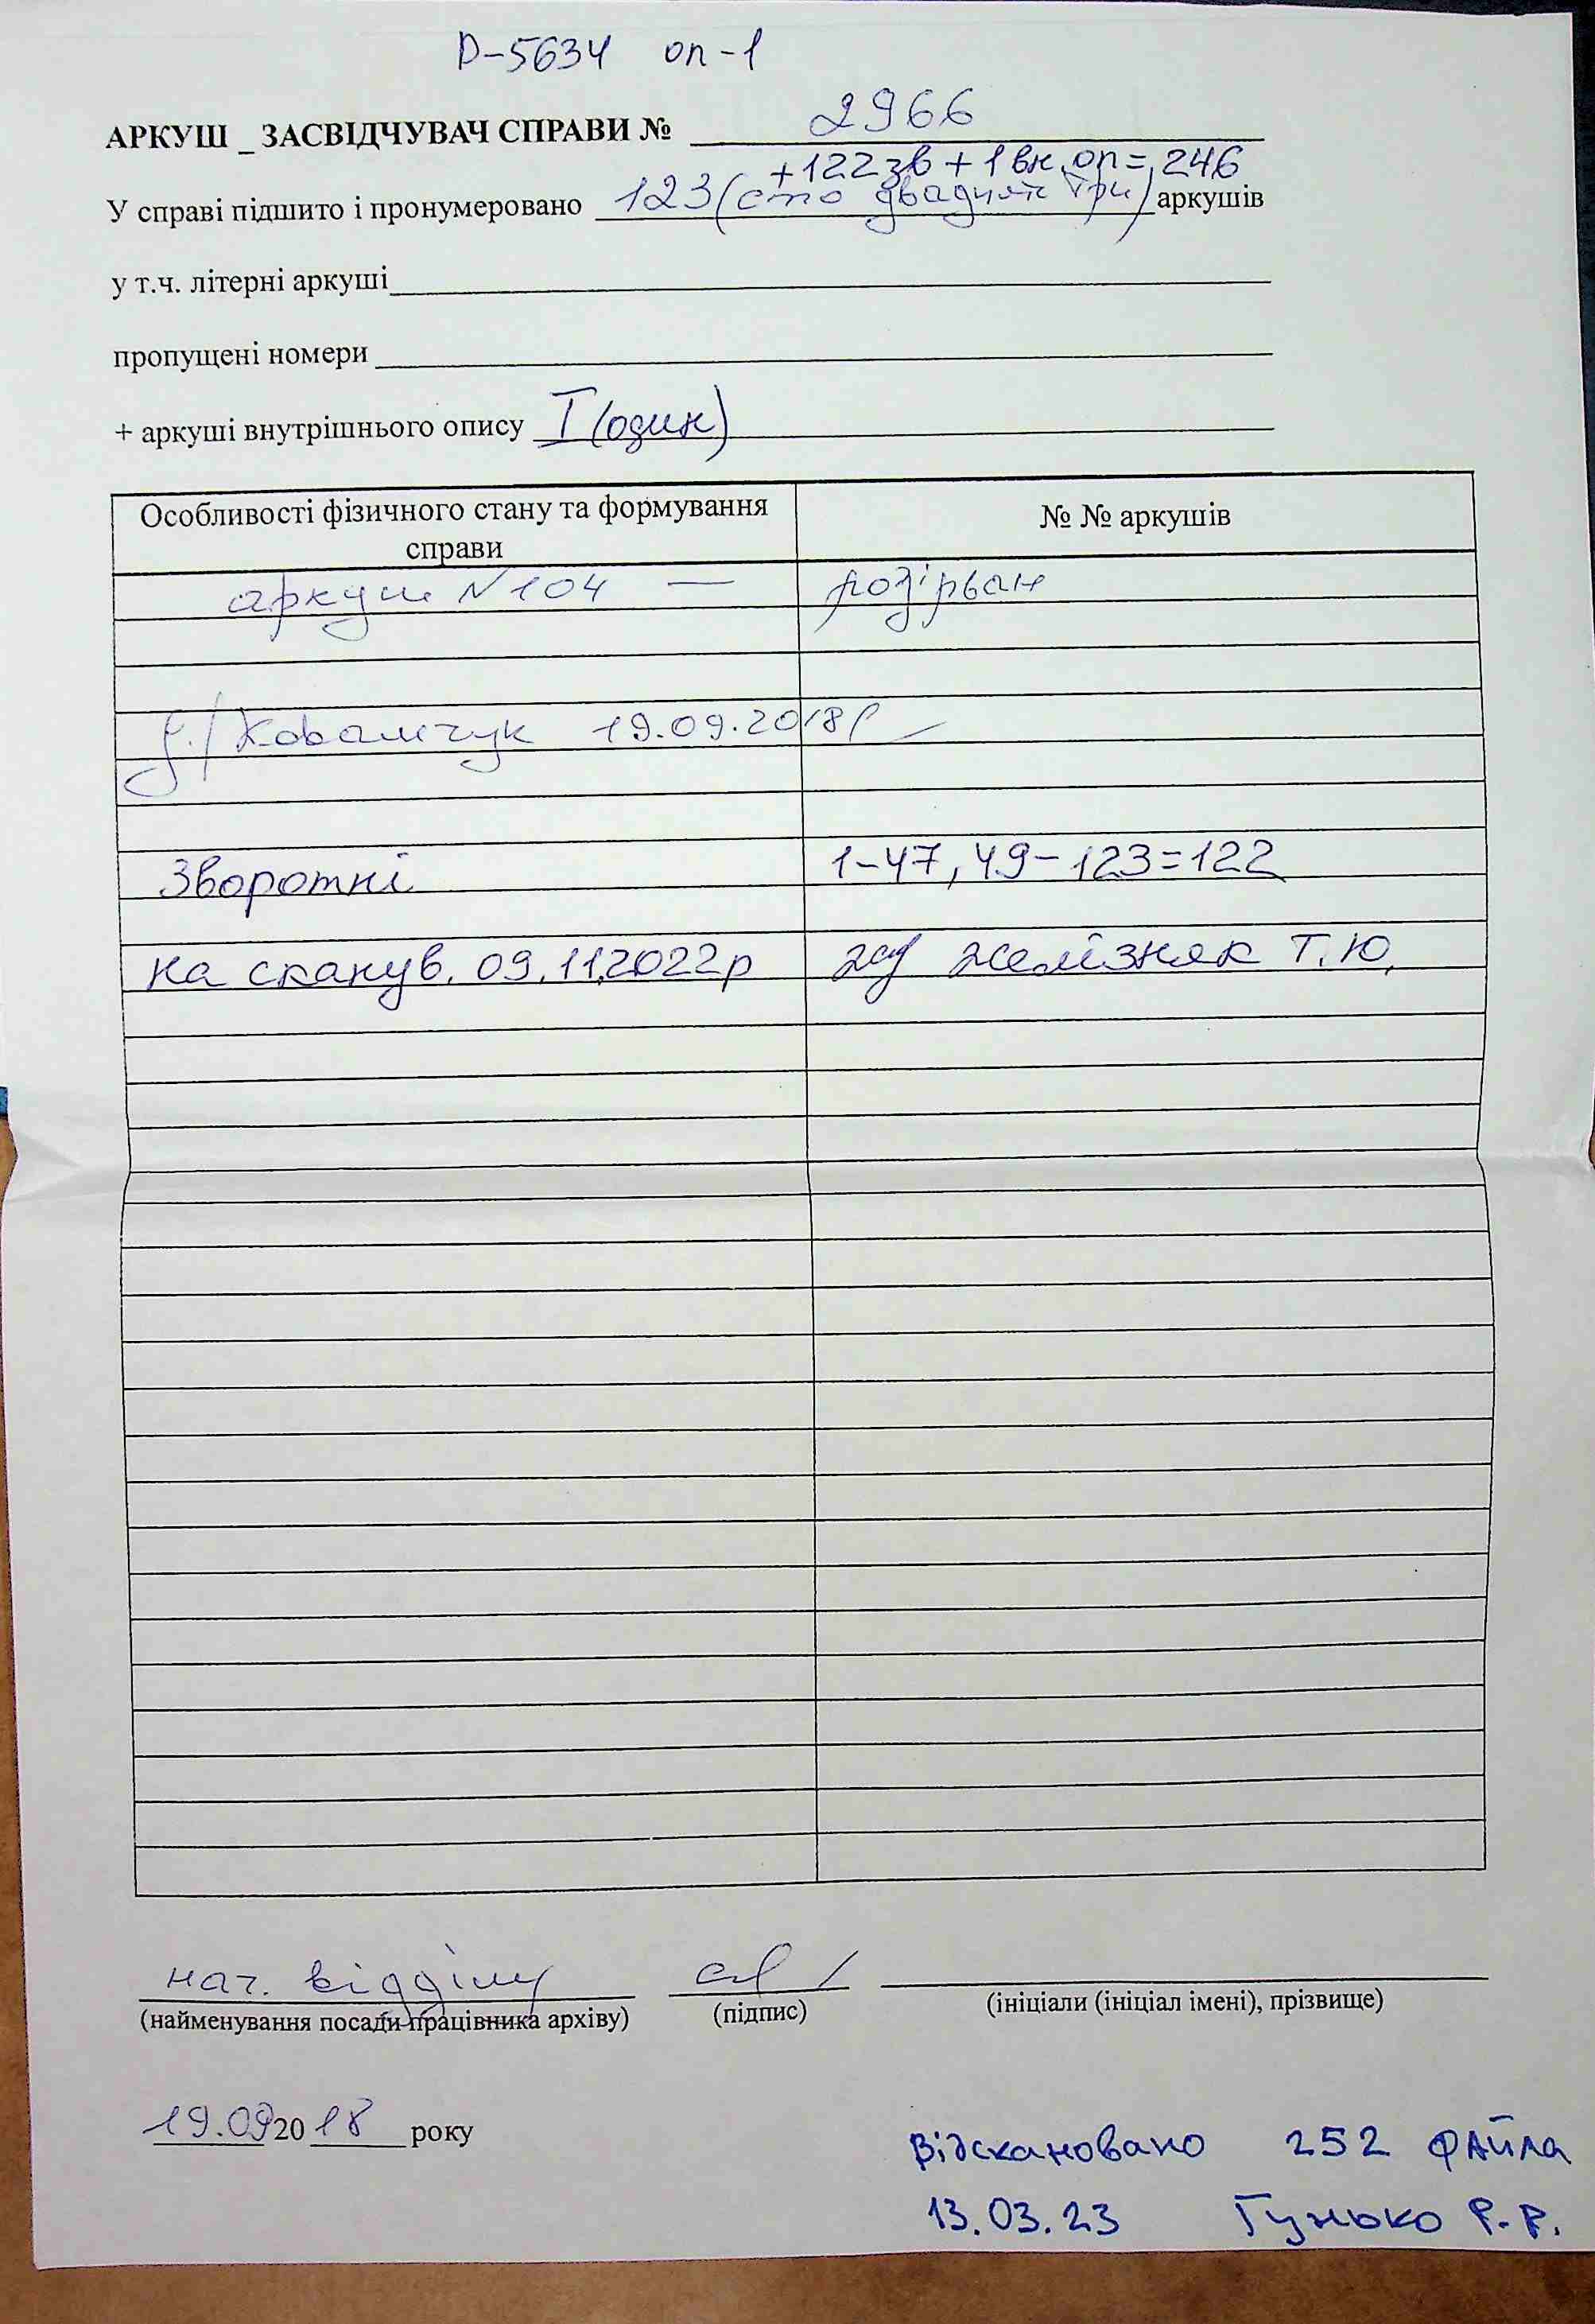 Р-5634 оп-1
АРКУШ _ ЗАСВІДЧУВАЧ СПРАВИ № 2966
+122 зв + 1 вн. оп = 246
У справі підшито і пронумеровано 123 (сто двадцять три) аркушів
у т.ч. літерні аркуші
пропущені номери
+ аркуші внутрішнього опису I (один)
Особливості фізичного стану та формування справи № № аркушів
аркуш №104 — розірван
/Ковальчук 19.09.2018р
Зворотні 1-47, 49-123=122
на сканув. 09.11.2022р Желізняк Т.Ю.
нач. відділу
(найменування посади працівника архіву) (підпис) (ініціали (ініціал імені), прізвище)
19.09 2018 року
Відскановано 252 файла
13.03.23 Гунько Р.Р.